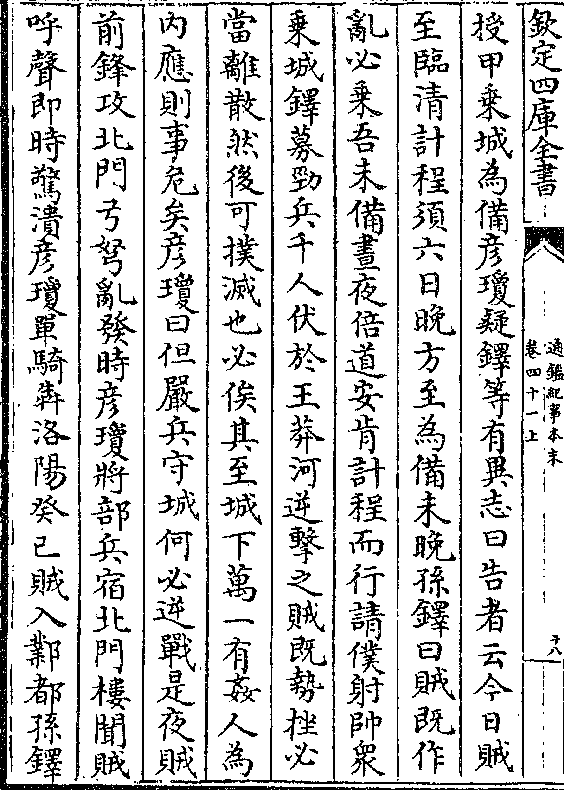 欽定四庫全書
通鑑紀事本末
卷四十一上
十八
授甲乘城為備彦瓊疑鐸等有異志曰告者云今日賊
至臨清計程須六日晚方至為備未晚孫鐸曰賊既作
亂必乘吾未備晝夜倍道安肯計程而行請僕射帥衆
乘城鐸募勁兵千人伏於王莽河逆擊之賊既勢挫必
當離散然後可撲滅也必俟其至城下萬一有姦人為
内應則事危矣彦瓊曰但嚴兵守城何必逆戰是夜賊
前鋒攻北門弓弩亂發時彦瓊將部兵宿北門樓聞賊
呼聲即時驚潰彦瓊單騎犇洛陽癸巳賊入鄴都孫鐸